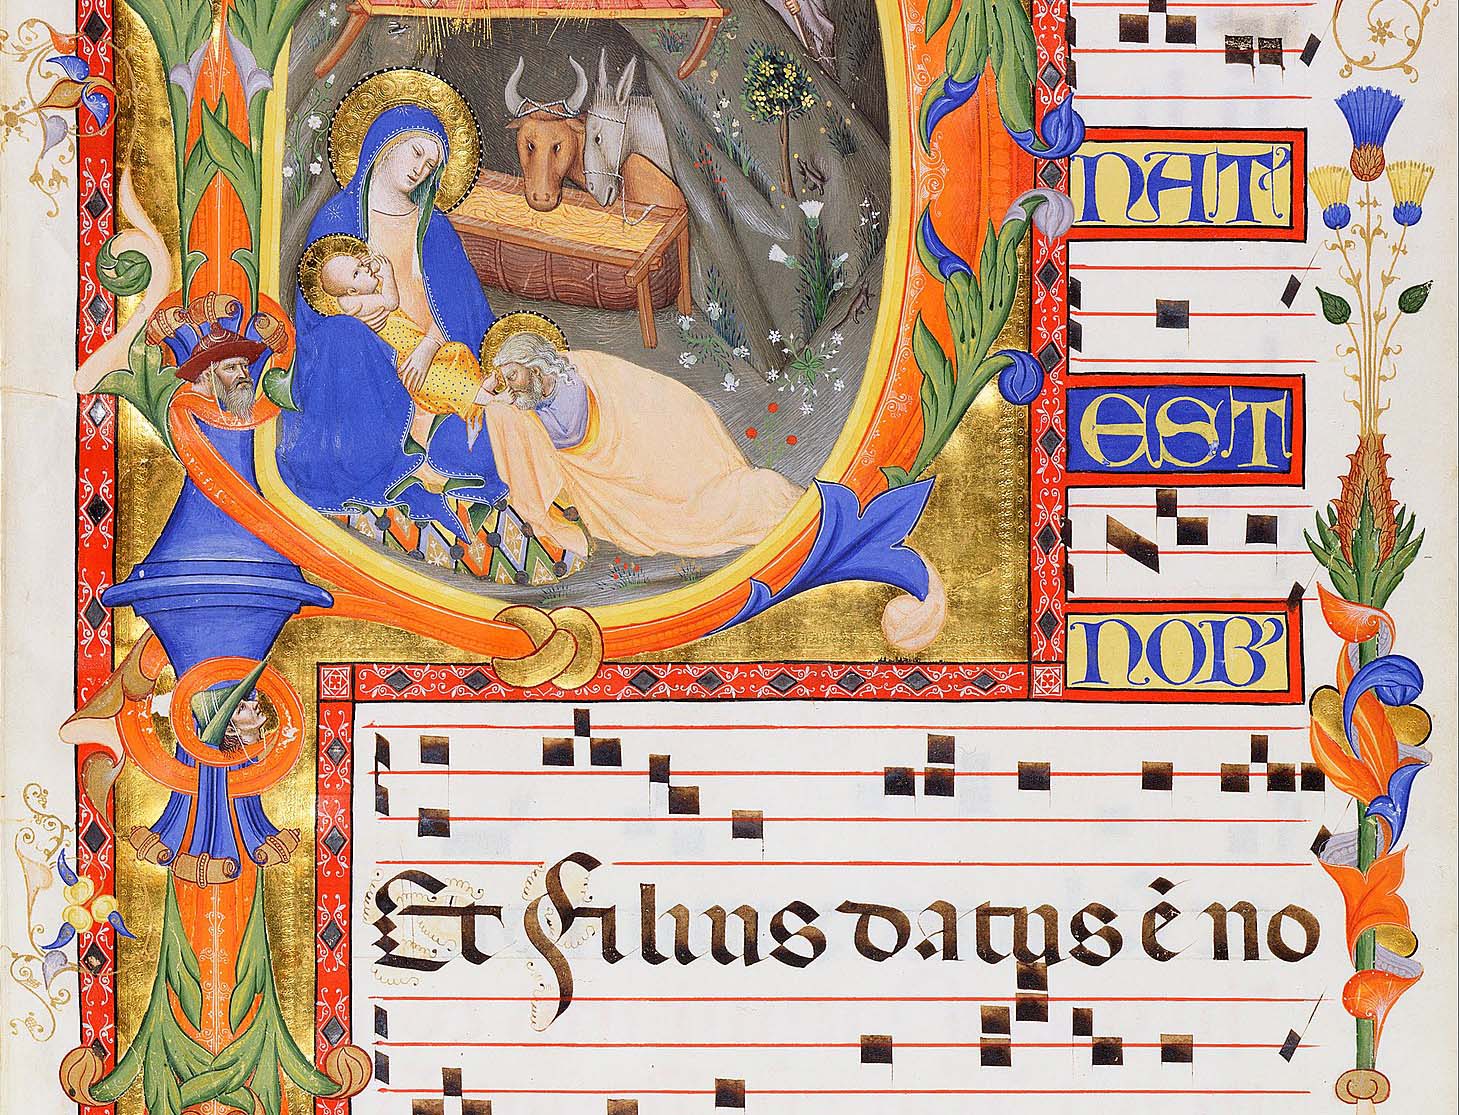 NAT'
EST
NOB'
Et filius datus ē no